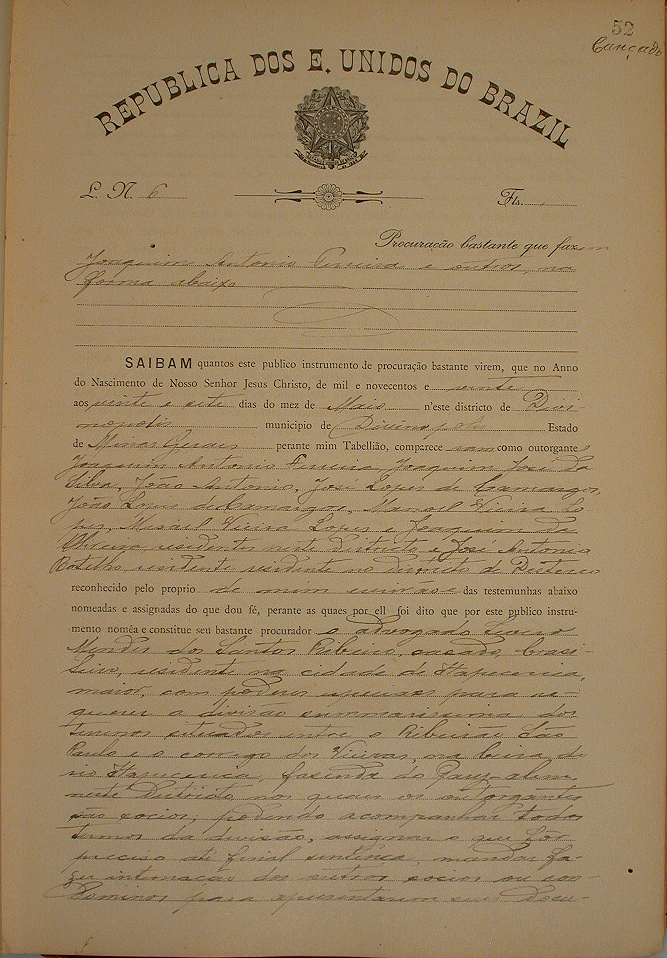 52
Cançado
REPUBLICA DOS E. UNIDOS DO BRAZIL
L. N. 6 Fls.
Procuração bastante que fazem
Joaquim Antonio Ferreira e outros, na
forma abaixo
SAIBAM quantos este publico instrumento de procuração bastante virem, que no Anno
do Nascimento de Nosso Senhor Jesus Christo, de mil e novecentos e vinte
aos vinte e sete dias do mez de Maio n'este districto de Divi-
nopolis municipio de Divinopolis Estado
de Minas Geraes perante mim Tabellião, comparece ram como outorgante s
Joaquim Antonio Ferreira, Joaquim José da
Silva, João Antonio, José Lopes de Camargos,
João Lopes de Camargos, Manoel Vieira Lo-
pes, Misael Vieira Lopes e Joaquim de
Oliveira, residentes neste districto e José Antonio
Botelho, residente residente no districto de Desterro
reconhecido pelo proprio de mim e das testemunhas abaixo
nomeadas e assignadas do que dou fé, perante as quaes por ell foi dito que por este publico instru-
mento noméa e constitue seu bastante procurador o advogado
Mendes dos Santos Ribeiro, casado, brasi-
leiro, residente na cidade de Itapecerica,
maior, com poderes especiaes para re-
querer a divisão summarissima dos
terrenos situados entre o Ribeirão São
Paulo e o corrego dos Vieiras, na beira do
rio Itapecerica, fazenda do
neste Districto, nos quaes os outorgantes
são socios, podendo acompanhar todos
termos da divisão, assignar o que fôr
preciso até final sentença, mandar fa-
zer intimação dos outros socios ou con-
dominos para apresentarem seus docu-